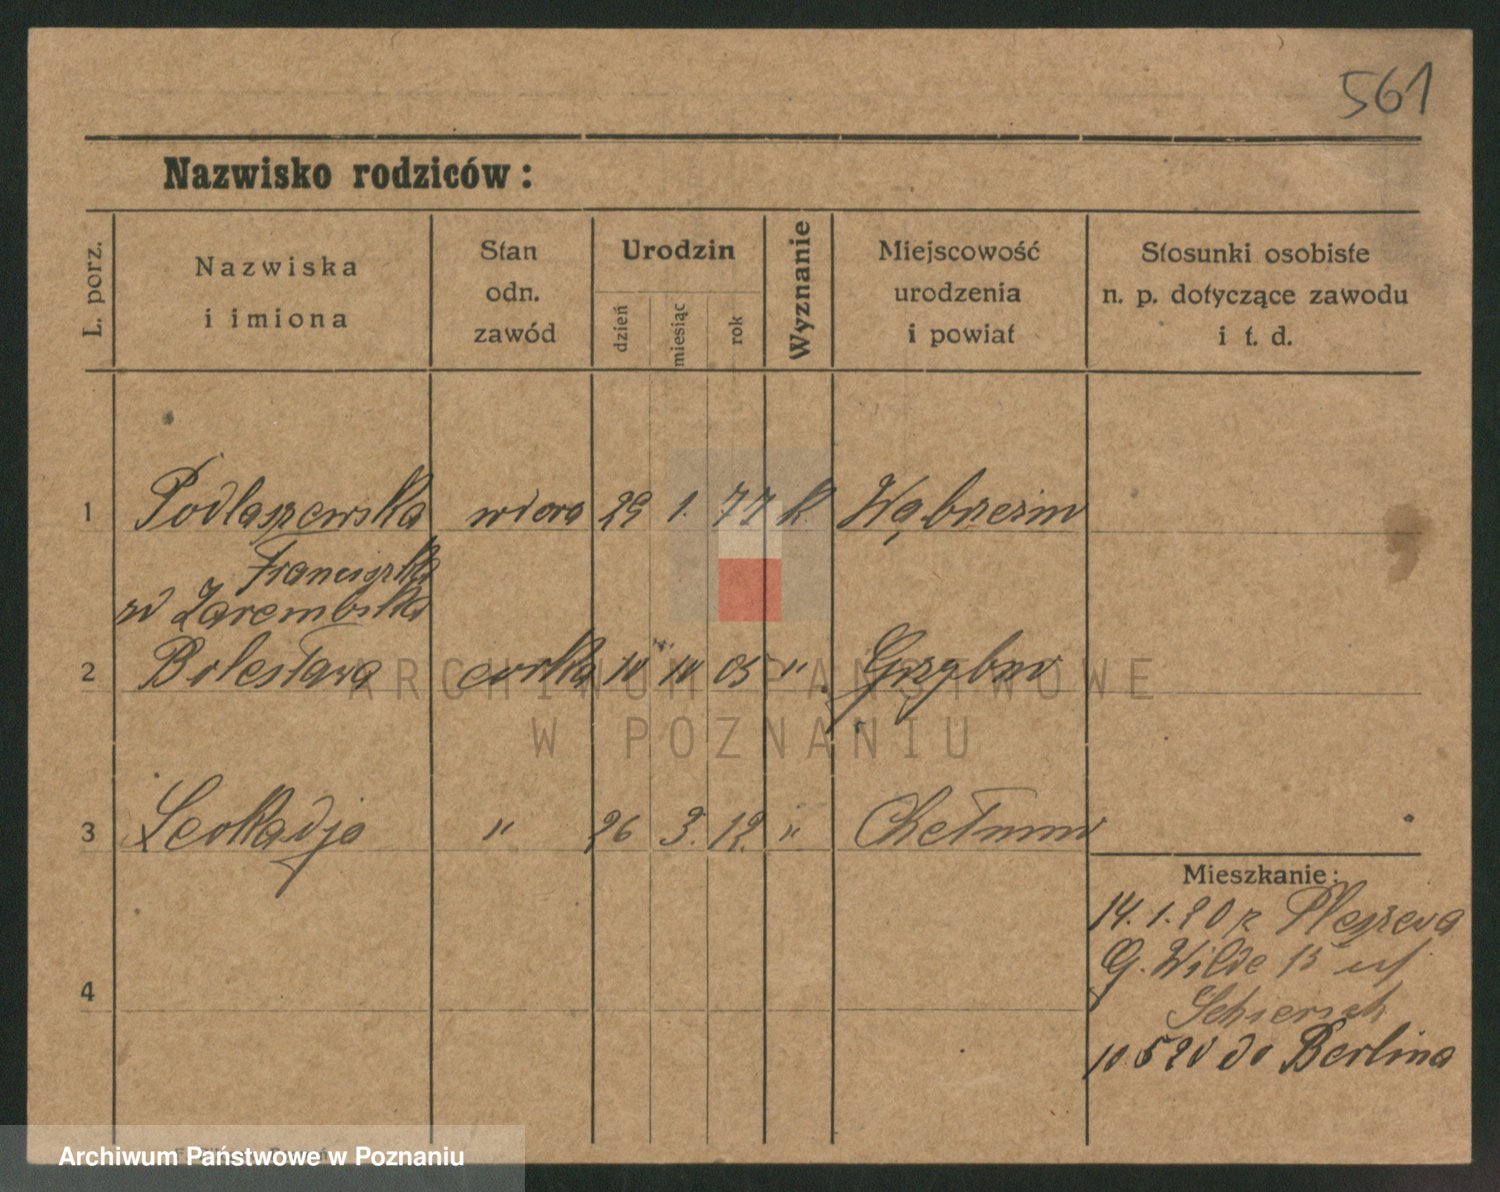 561
Nazwisko rodziców:
L. porz.
Nazwiska
i imiona
Stan
odn.
zawód
Urodzin
dzień
miesiąc
rok
Wyznanie
Miejscowość
urodzenia
i powiat
Stosunki osobiste
n. p. dotyczące zawodu
i t. d.
1 Podlaszewska wdowa 29 1. 77 k.
Franciszka
zd Zarembska
2 Bolesława corka 10 10 05 "
ARCHIWUM PAŃSTWOWE
W POZNANIU
3 Leokadja " 26 3. 12. "
Mieszkanie:
14.1.20 z Pleszewa
G. Wilde 15 u
4
10.5 20 do Berlina
Archiwum Państwowe w Poznaniu